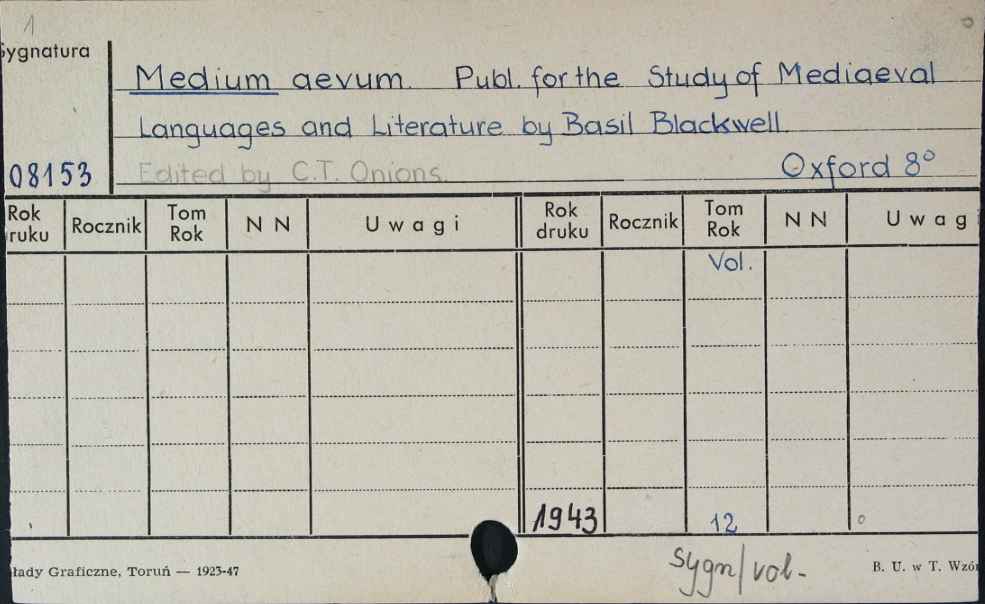 1
Sygnatura
Medium aevum. Publ. for the Study of Mediaeval
Languages and Literature by Basil Blackwell.
08153 Edited by C.T. Onions. Oxford 8°
Rok ruku Rocznik Tom Rok N N Uwagi Rok druku Rocznik Tom Rok N N Uwagi
Vol.
1943 12
sygn/vol-
łady Graficzne, Toruń — 1923-47 B. U. w T. Wzór